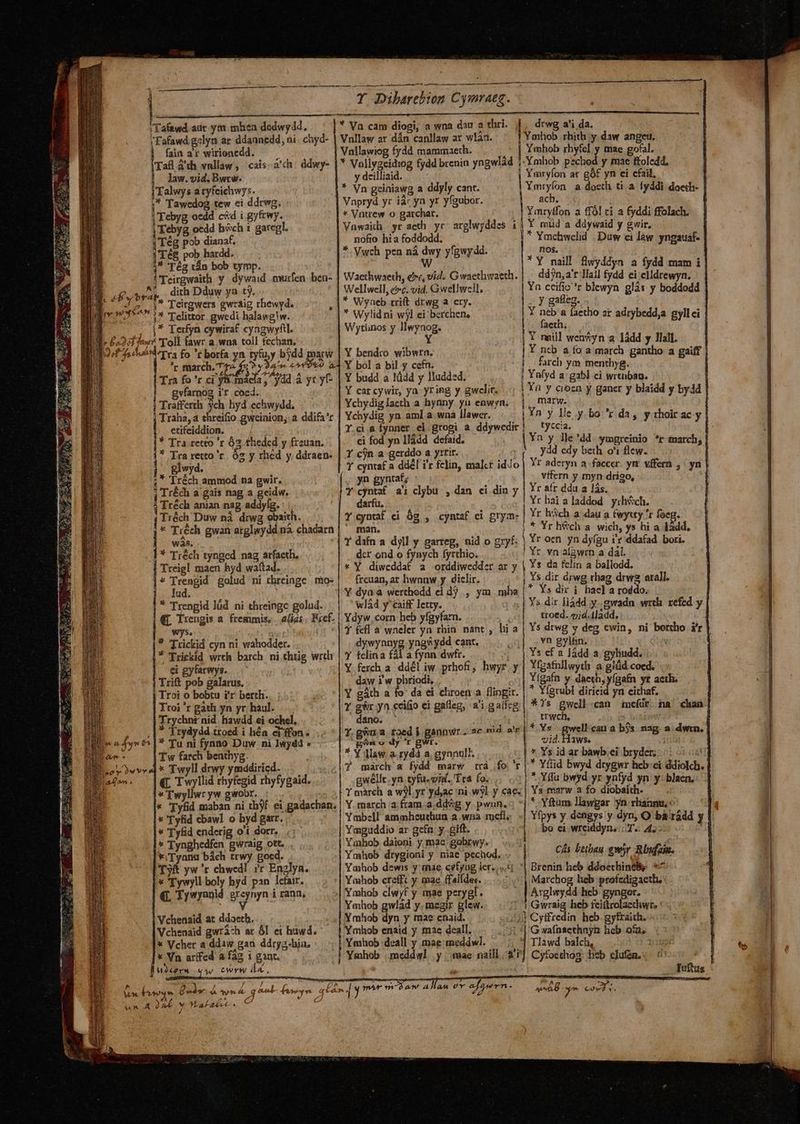 Y Diharebion Cymraeg.
Tafawd aur ym mhen dedwydd.
Tafawd gelyn ar ddannedd, ni chyd-
fain a'r wirionedd.
Tafl â'th unllaw, cais â'ch ddwy-
law. vid. Bwrw.
Talwys a ryfeichwys.
* Tawedog tew ei ddrwg.
Tebyg oedd câd i gyfrwy.
Tebyg oedd hwch i garegl.
Têg pob dianaf.
Têg pob hardd.
* Têg tân bob tymp.
Teirgwaith y dywaid mursen ben-
dith Dduw yn tŷ.
* Teirgwers gwraig rhewyd.
* Telittor gwedi halawglw.
* Terfyn cywiraf cyngwystl.
Toll fawr a wna toll fechan.
Tra fo 'r borfa yn tyfu, y bŷdd marw
'r march.
Tra fo 'r ci yn maela, ydd â yr ys-
gyfarnog i'r coed.
Trafferth ŷch hyd echwydd.
Traha, a threisio gweinion, a ddifa'r
etifeiddion.
* Tra retto 'r ôg rheded y freuan.
* Tra retto 'r ôg y rhéd y ddraen-
glwyd.
* Tréch ammod na gwir.
Tréch a gais nag a geidw.
Tréch anian nag addysg.
Tréch Duw nâ drwg obaith.
* Tréch gwan arglwydd nâ chadarn
wâs.
* Tréch tynged nag arfaeth.
Treigl maen hyd wastad.
* Trengid golud ni threinge mo-
lud.
* Trengid lûd ni threinge golud.
₵ Trengis a fremmis. aliàs. Bref-
wys.
* Trickid cyn ni wahodder.
* Trickid wrth barch ni thrig wrth
ei gyfarwys.
Trist pob galarus.
Troi o bobtu i'r berth.
Troi 'r gath yn yr haul.
Trychni nid hawdd ei ochel.
* Trydydd troed i hên ei ffon.
* Tu ni fynno Duw ni lwydd.
Tw farch benthyg.
* Twyll drwy ymddiried.
₵ Twyllid rhyfegid rhyfygaid.
* Twyllwr yw gwobr.
* Tyfid maban ni thŷf ei gadachan.
* Tyfid ebawl o hyd garr.
* Tyfid enderig o'i dorr.
* Tynghedfen gwraig ott.
* Tyanu bâch trwy goed.
Tŷst yw 'r chwedl i'r Englyn.
* Tywyll boly hyd pan lefair.
₵ Tywynnid greynyn i rann,
V
Vchenaid at ddaeth.
Vchenaid gwrâch ar ôl ei huwd.
* Vcher a ddaw gan ddryg-hin.
* Vn arffed a fâg i gant.
* Vn cam diogi, a wna dau a thri.
Vnllaw ar dân canllaw ar wlân.
Vnllawiog fydd mammaeth.
* Vnllygeidiog fydd brenin yngwlâd
y deilliaid.
* Vn geiniawg a ddyly cant.
Vnpryd yr iâr yn yr ysgubor.
* Vntrew o garchar.
Vnwaith yr aeth yr arglwyddes i
nofio hi a foddodd.
* Vwch pen nâ dwy ysgwydd.
W
Waethwaeth, &c, vid. Gwaethwaeth.
Wellwell, &c. vid. Gwellwell.
* Wyneb trist drwg a ery.
* Wylid ni wŷl ei berchen.
Wytinos y llwynog.
Y
Y bendro wibwrn.
Y bol a bil y cefn.
Y budd a lûdd y lludded.
Y car cywir, yn yr ing y gwelir.
Ychydig laeth a hynny yn enwyn.
Ychydig yn aml a wna llawer.
Y ci a fynner el grogi a ddywedir
ei fod yn llâdd defaid.
Y cŷn a gerddo a yrrir.
Y cyntaf a ddêl i'r felin, malet iddo
yn gyntaf.
Y cyntaf a'i clybu, dan ei din y
darfu.
Y cyntaf ei ôg, cyntaf ei gryn-
man.
Y dafn a dyll y garreg, nid o gryf-
der ond o fynych syrthio.
* Y diweddaf a orddiwedder ar y
freuan, ar hwnnw y dielir.
Y dyn a werthodd ei dŷ, ym mha
wlâd y caiff letty.
Ydyw corn heb ysgyfarn.
Y fesl a wneler yn rhin nant, hi a
dywynnyg yngŵydd cant.
Y felina fâl a fynn dwfr.
Y ferch a ddêl iw phrofi, hwyr y
daw i'w phriodi.
Y gâth a fo da ei chroen a flingir.
Y gŵr yn ceisio ei gaseg, a'i gaseg
dano.
Y gŵn a roed i gannwr, ac nid a'r
gŵn o dy 'r gwr.
* Y llaw a rydd a gynnull.
Y march a fydd marw tra fo 'r
gwellt yn tyfu. vid. Tra fo.
Y march a wŷl yr ŷd, ac ni wŷl y cae.
Y march a fram a ddŵg y pwnn.
Ymbell ammheuthun a wna mesl.
Ymguddio ar gefn y gist.
Ymhob daioni y mae gobrwy.
Ymhob drygioni y mae pechod.
Ymhob dewis y mae cyfyng ler.
Ymhob crefft y mae ffalsder.
Ymhob clwyf y mae perygl.
Ymhob gwlad y megir glew.
Ymhob dyn y mae enaid.
Ymhob enaid y mae deall.
Ymhob deall y mae meddwl.
Ymhob meddwl y mae naill a'i
drwg a'i da.
Ymhob rhith y daw angeu.
Ymhob rhysel y mae gofal.
Ymhob pechod y mae ffoledd.
Ymryson ar gôf yn ei efail.
Ymryson a doeth ti a fyddi doeth-
ach.
Ymryson a ffôl ti a fyddi ffolach.
Y mûd a ddywaid y gwir.
* Ymchwelid Duw ei law yngauaf-
nos.
* Y naill flwyddyn a fydd mam i
ddŷn, a'r llall fydd ei elldrewyn.
Yn ceisio 'r blewyn glâs y boddodd
y gaseg.
Y neb a saetho ar adrybedd, a gyll ei
saeth.
Y naill wenwyn a lâdd y llall.
Y neb a fo a march gantho a gaiff
farch ym menthyg.
Yn y croen y ganer y blaidd y bydd
marw.
Yn y lle y bo 'r da, y rhoir ac y
tyccia.
Yn y lle 'dd ymgreinio 'r march,
ydd edy beth o'i flew.
Yr aderyn a faccer yn uffern, yn
uffern y myn drigo,
Yr afr ddu a lâs.
Yr hai a laddod ychŵch.
Yr hŵch a dau a twyrty 'r soeg.
* Yr hŵch a wich, ys hi a lâdd.
Yr oen yn dysgu i'r ddafad bori.
Yr un asgwrn a dâl.
Ys da felin a ballodd.
Ys dir drwg rhag drwg arall.
* Ys dir i hael a roddo.
Ys dir lladd y gwadn wrth refed y
troed. vid. llâdd.
Ys drwg y deg ewin, ni bortho i'r
un gylfin.
Ys ef a lâdd a gyhudd.
Ysgafnllwyth a glûd coed.
Ysgafn y daeth, ysgafn yr aeth.
* Ysgrubl dirieid yn eithaf.
* Ys gwell can mesur na' chan
trwch.
* Ys gwell can a bŷs nag a dwrn.
vid. Haws.
* Ys id ar bawb ei bryder.
* Ysid bwyd drygwr heb ei ddiolch.
* Ysu bwyd yr ynfyd yn y blaen.
Ys marw a fo diobaith.
* Ystum llawgar yn rhannu.
Yspys y dengys y dyn, O ba râdd y
bo ei wreiddyn. T. A.
Câs bethau gwŷr Rhufain.
Brenin heb ddoethineb.
Marchog heb profedigaeth.
Arglwydd heb gyngor.
Gwraig heb feistrolaethwr.
Cyffredin heb gyfraith.
Gwasnaethyn heb ofn.
Tlawd balch,
Cyfoethog heb elusen.
Iustus